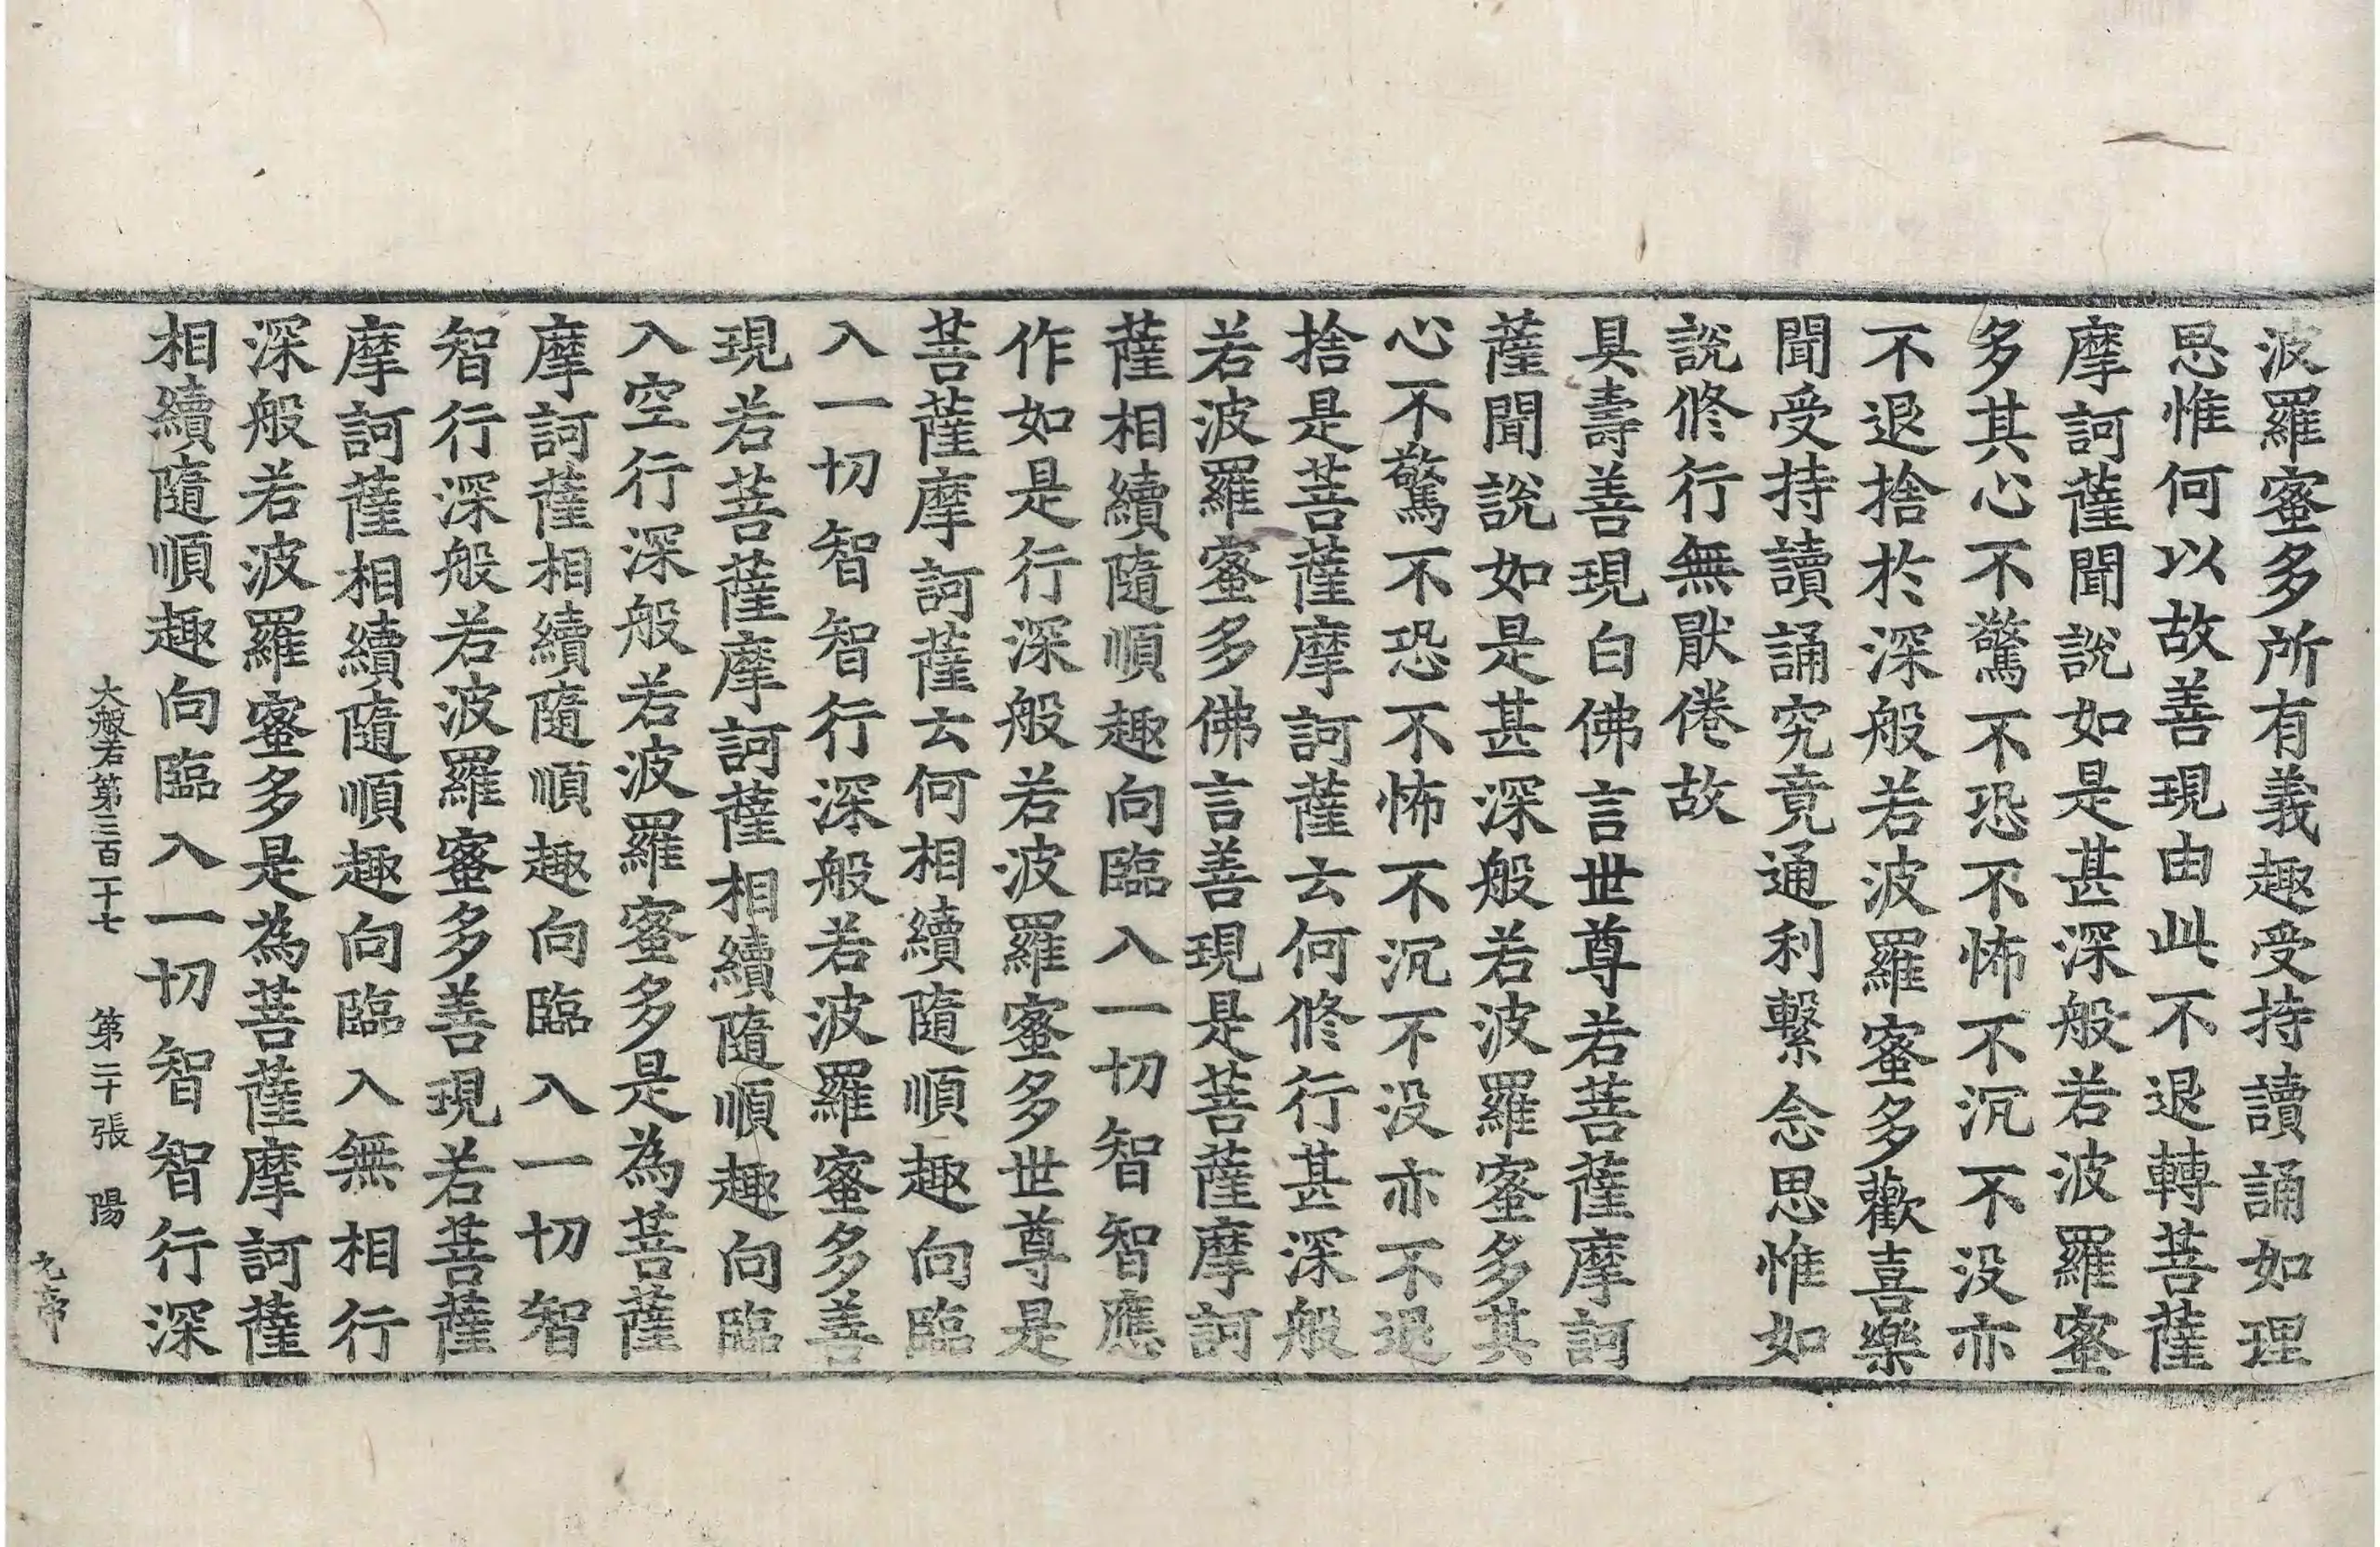 波羅蜜多所有義趣受持讀誦如理
思惟何以故善現由此不退轉菩薩
摩訶薩聞說如是甚深般若波羅蜜
多其心不驚不恐不怖不沉不没亦
不退捨於深般若波羅蜜多歡喜樂
聞受持讀誦究竟通利繫念思惟如
說修行無猒倦故
具壽善現白佛言世尊若菩薩摩訶
薩聞說如是甚深般若波羅蜜多其
心不驚不恐不怖不沉不没亦不退
捨是菩薩摩訶薩云何修行甚深般
若波羅蜜多佛言善現是菩薩摩訶
薩相續隨順趣向臨入一切智智應
作如是行深般若波羅蜜多世尊是
菩薩摩訶薩云何相續隨順趣向臨
入一切智智行深般若波羅蜜多善
現若菩薩摩訶薩相續隨順趣向臨
入空行深般若波羅蜜多是為菩薩
摩訶薩相續隨順趣向臨入一切智
智行深般若波羅蜜多善現若菩薩
摩訶薩相續隨順趣向臨入無相行
深般若波羅蜜多是為菩薩摩訶薩
相續隨順趣向臨入一切智智行深
大般若第三百二十七 第二十張 陽